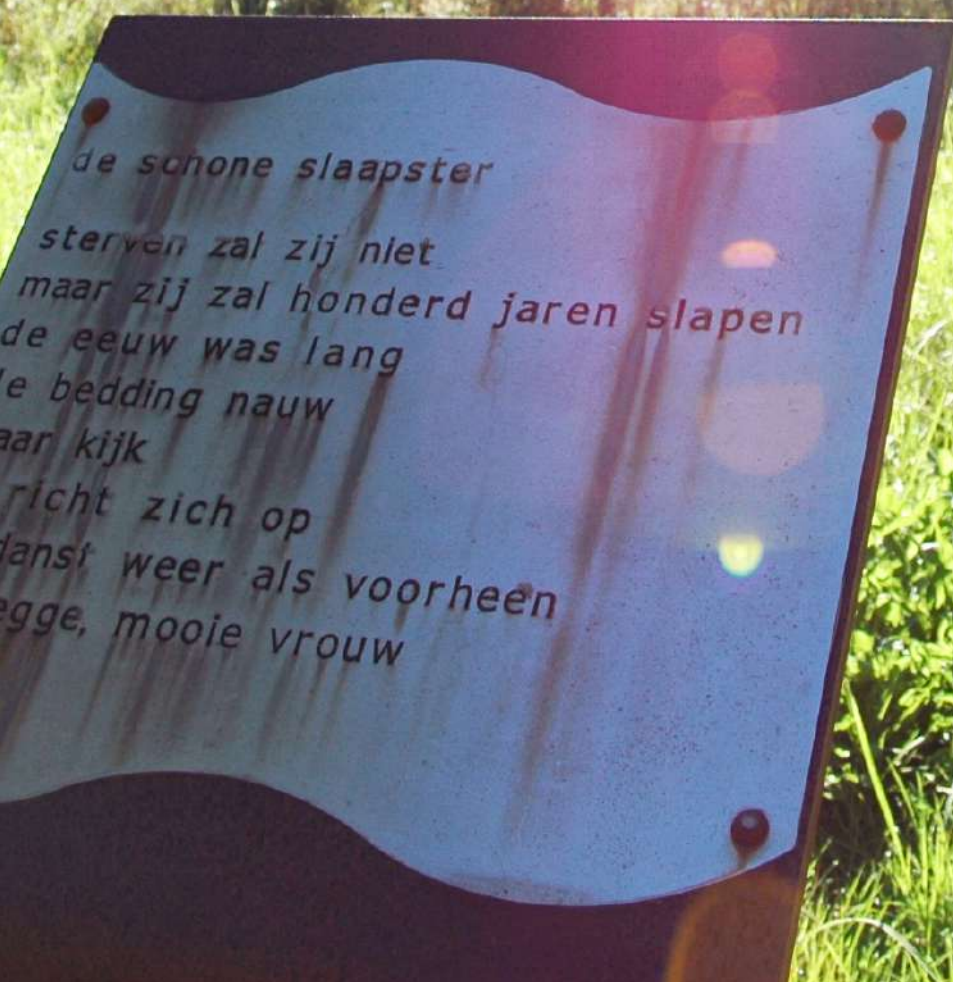 de schone slaapster
sterven zal zij niet
maar zij zal honderd jaren slapen
de eeuw was lang
bedding nauw
kijk
richt zich op
weer als voorheen
mooie vrouw